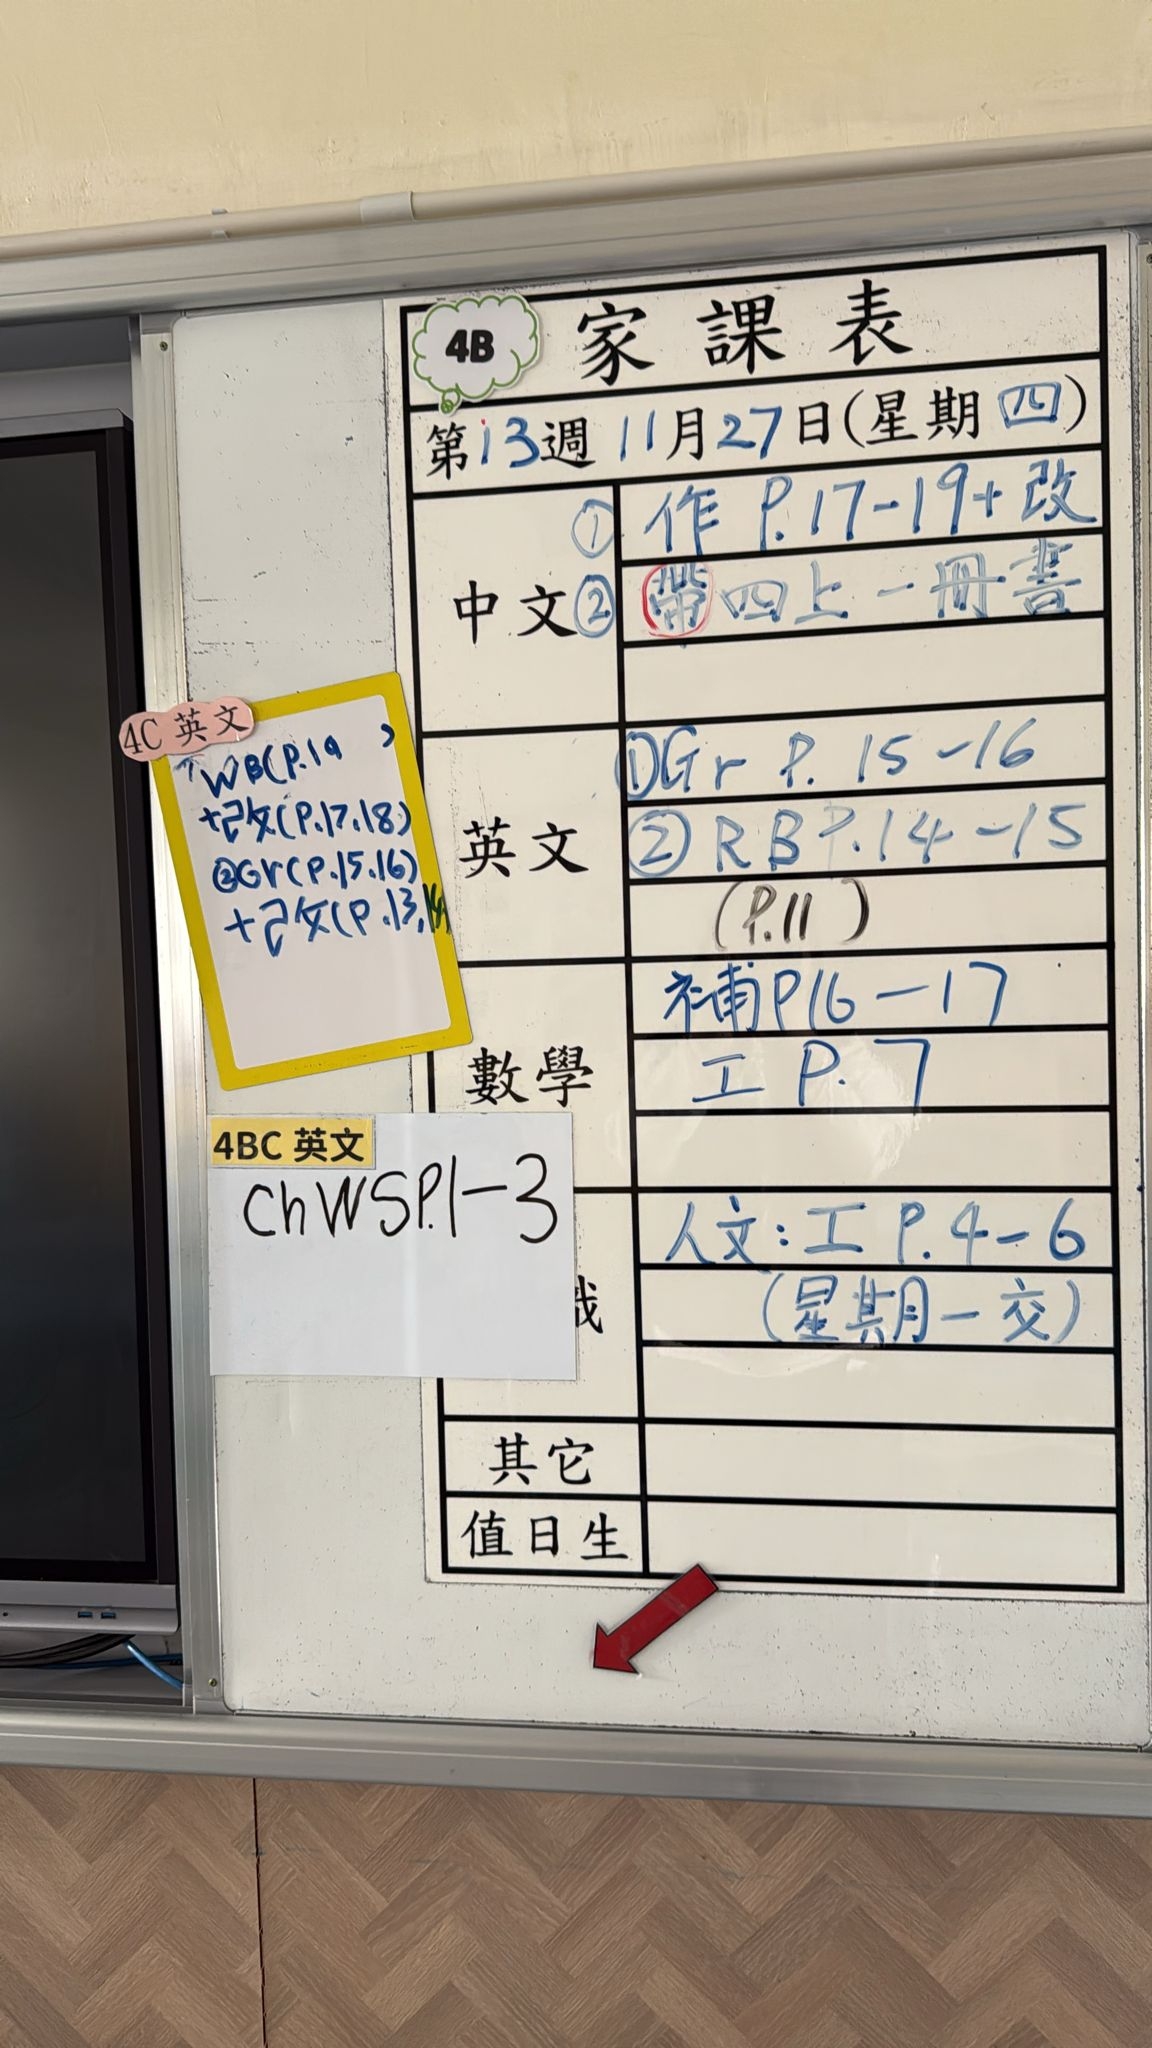 4B 家課表
第13週 11月27日(星期四)
中文
① 作 P.17-19+改
② 帶四上一冊書
英文
①Gr P. 15-16
② RB P.14-15
(P.11)
數學
補P16-17
工 P.7
人文:工 P.4-6
(星期一交)
其它
值日生
4C 英文
WB(P.19 )
+改(P.17.18)
②Gr(P.15.16)
+改(P.13,14
4BC 英文
ChWS P.1-3